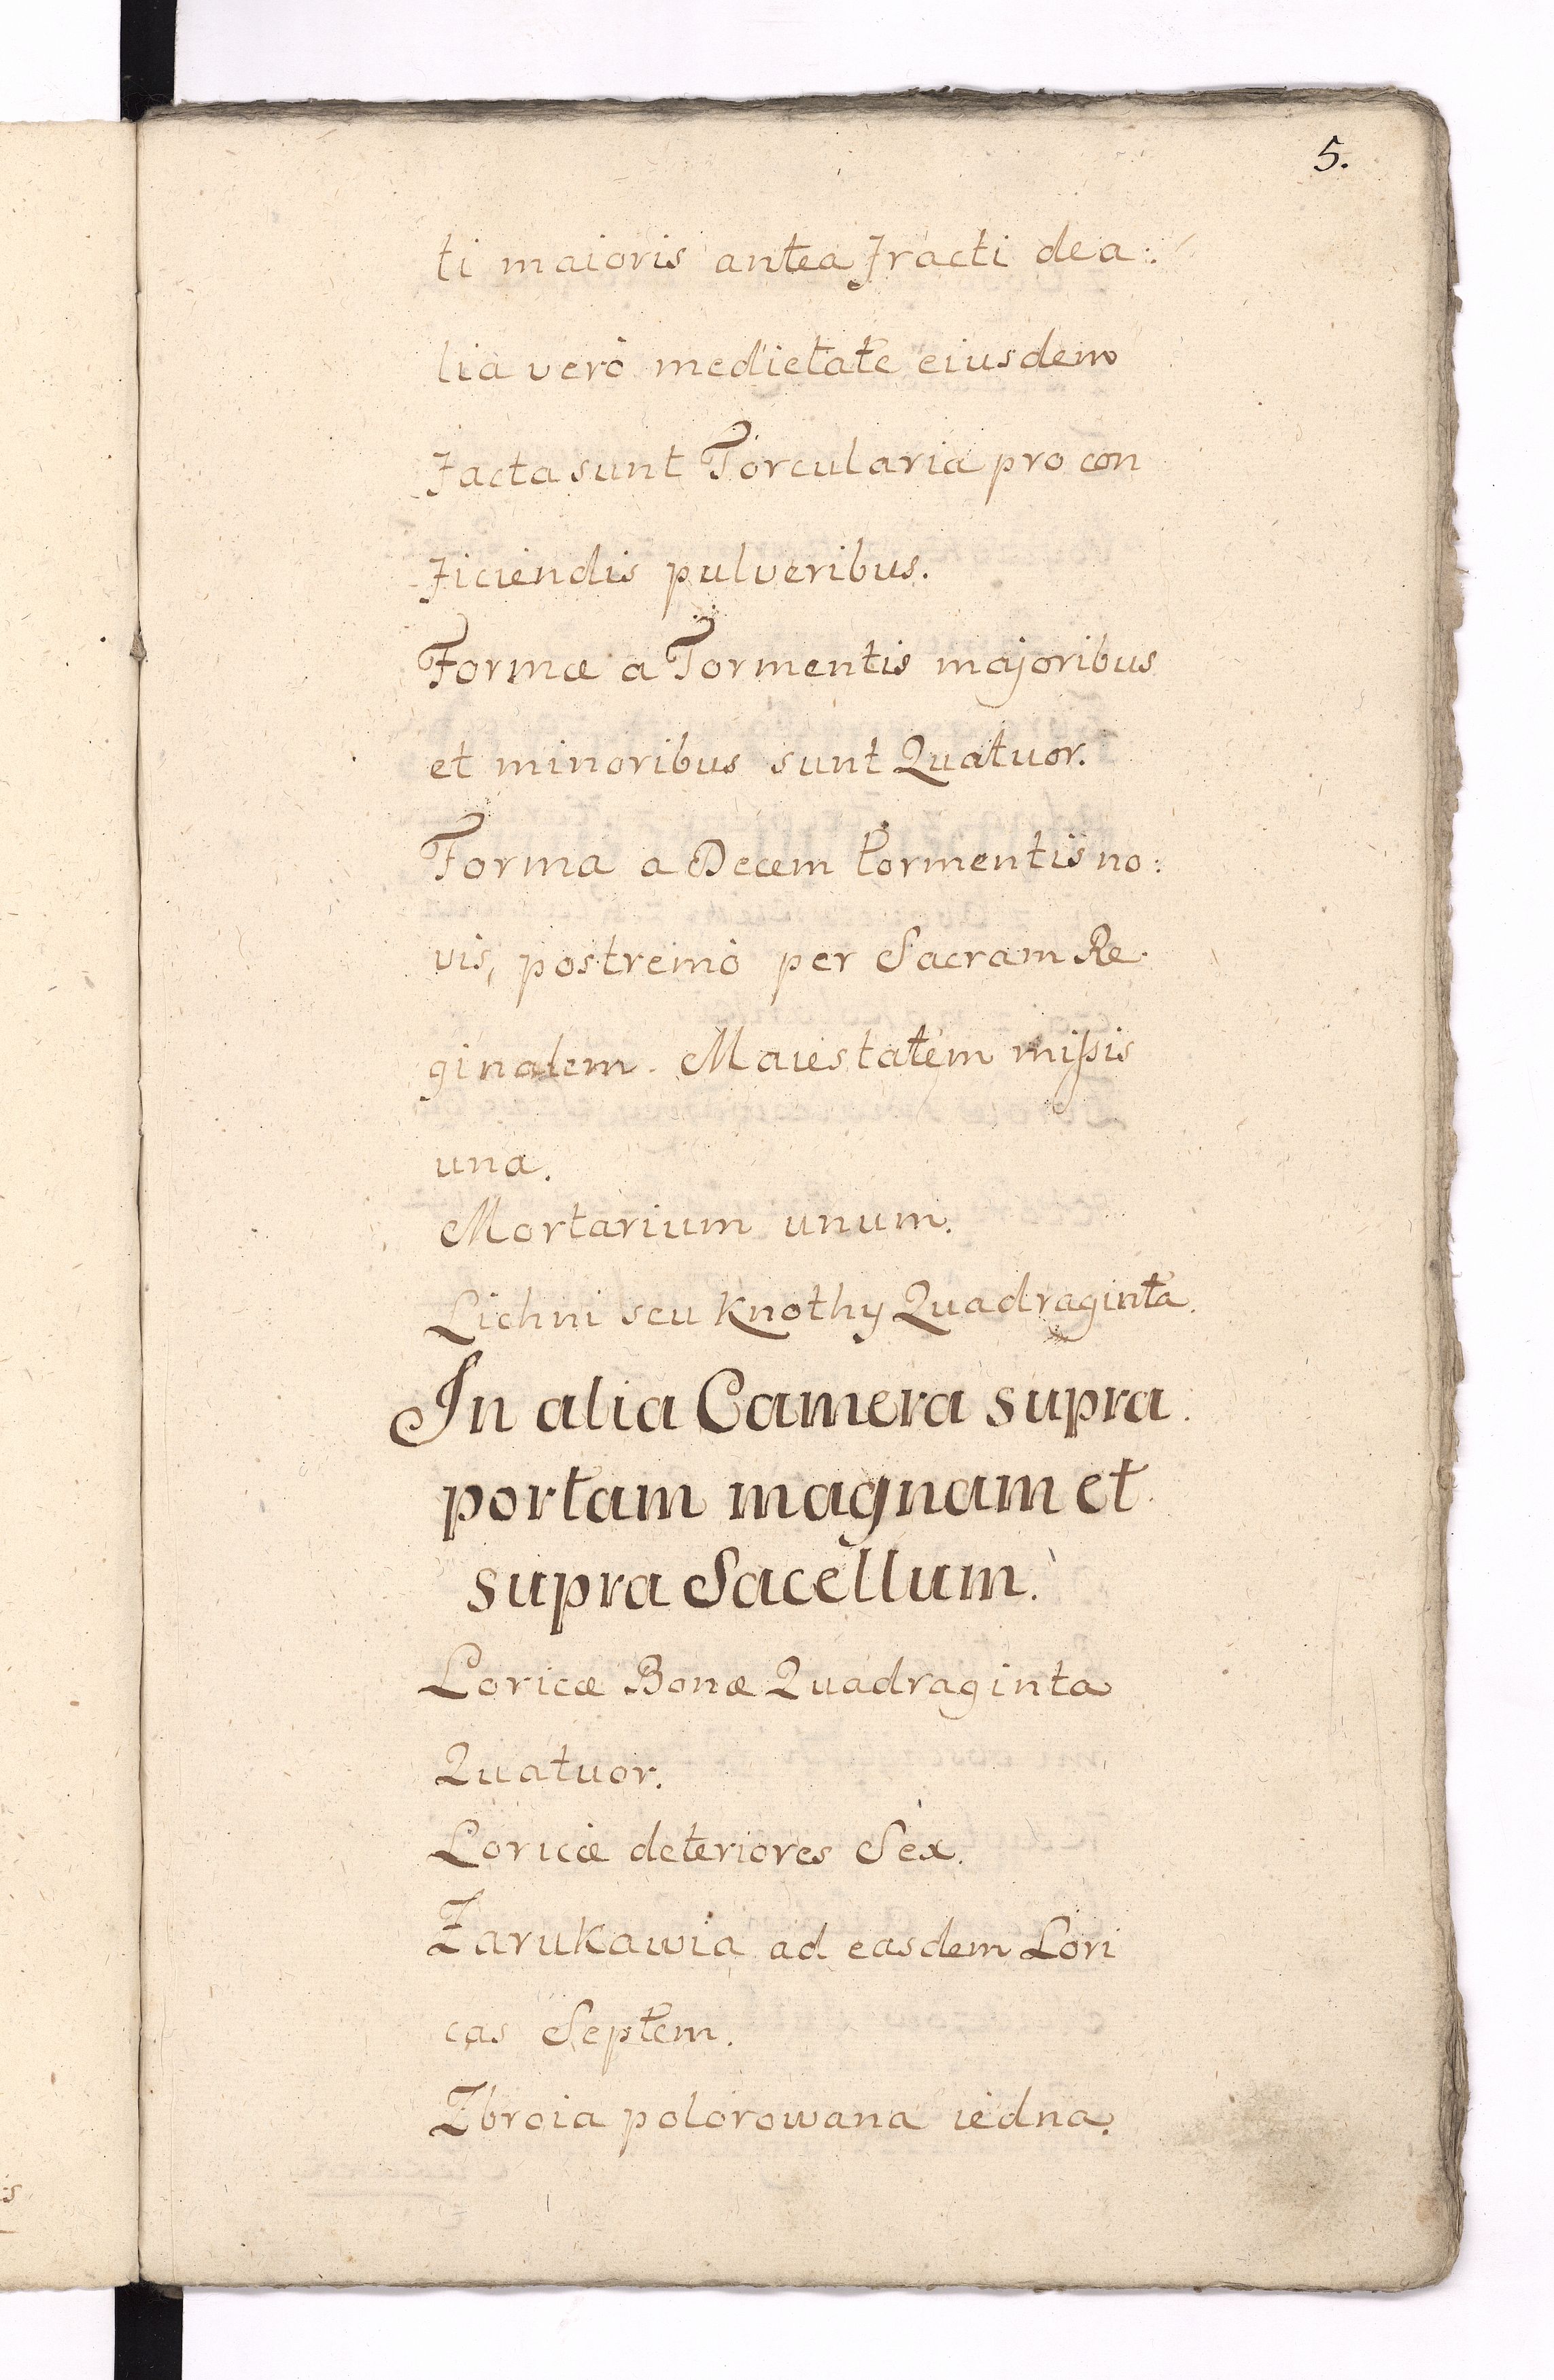 5.
ti maioris antea fracti de a:
lia verò medietate eiusdem
facta sunt Torcularia pro con
ficiendis pulveribus.
Formæ a Tormentis majoribus
et minoribus sunt Quatuor.
Forma a Decem tormentis no:
vis, postremò per Sacram Re
ginalem. Maiestatem missis
una.
Mortarium unum.
Lichni seu Knothy Quadraginta.
In alia Camera supra
portam magnam et
supra Sacellum.
Loricæ Bonæ Quadraginta
Quatuor.
Loricæ deteriores Sex.
Zarukawia ad easdem Lori
cas Septem.
Zbroia polorowana iedna.
is